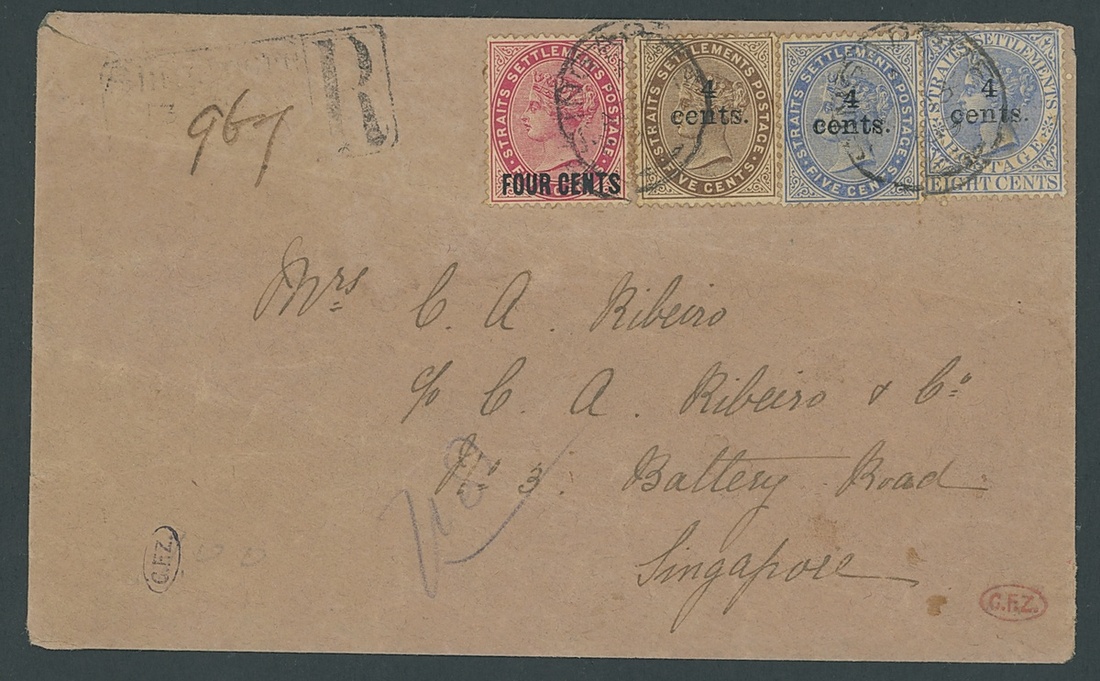 R
967
STRAITS SETTLEMENTS POSTAGE
FOUR CENTS
STRAITS SETTLEMENTS POSTAGE
4
cents.
FIVE CENTS
STRAITS SETTLEMENTS POSTAGE
4
cents.
FIVE CENTS
STRAITS SETTLEMENTS
4
cents.
POSTAGE
EIGHT CENTS
Mrs C. A. Ribeiro
c/o C. A. Ribeiro & Co
No 3. Battery Road
Singapore
C.F.Z.
C.F.Z.